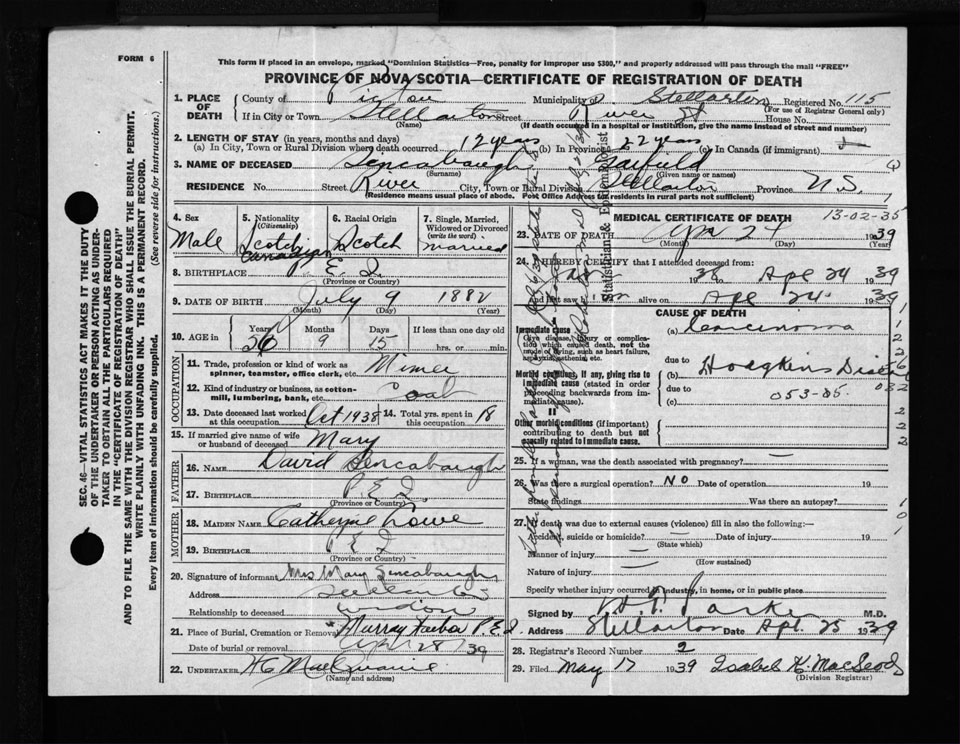 FORM 6
This form if placed in an envelope, marked "Dominion Statistics—Free, penalty for improper use $300," and properly addressed will pass through the mail "FREE"
PROVINCE OF NOVA SCOTIA—CERTIFICATE OF REGISTRATION OF DEATH
1. PLACE OF DEATH County of Pictou Municipality of Stellarton Registered No. 115
(For use of Registrar General only)
If in City or Town Stellarton Street River St House No.
(Name) (If death occurred in a hospital or institution, give the name instead of street and number)
2. LENGTH OF STAY (in years, months and days)
(a) In City, Town or Rural Division where death occurred 12 years (b) In Province 22 years (c) In Canada (if immigrant)
3. NAME OF DECEASED Sencabaugh Garfield
(Surname) (Given name or names)
RESIDENCE No. Street River City, Town or Rural Division Stellarton Province N.S.
(Residence means usual place of abode. Post Office Address for residents in rural parts not sufficient)
4. Sex Male
5. Nationality (Citizenship) Scotch Canadian
6. Racial Origin Scotch
7. Single, Married, Widowed or Divorced (write the word) married
8. BIRTHPLACE P.E.I.
(Province or Country)
9. DATE OF BIRTH July 9 1882
(Month) (Day) (Year)
10. AGE in Years 56 Months 9 Days 15 If less than one day old
hrs. or min.
OCCUPATION
11. Trade, profession or kind of work as spinner, teamster, office clerk, etc. Miner
12. Kind of industry or business, as cotton-mill, lumbering, bank, etc. Coal
13. Date deceased last worked at this occupation Oct 1938 14. Total yrs. spent in 18
15. If married give name of wife or husband of deceased Mary
FATHER
16. NAME David Sencabaugh
17. BIRTHPLACE P.E.I.
(Province or Country)
MOTHER
18. MAIDEN NAME Catherine Lowe
19. BIRTHPLACE P E I
(Province or Country)
20. Signature of informant Mrs Mary Sencabaugh
Address Stellarton
Relationship to deceased widow
21. Place of Burial, Cremation or Removal Murray Harbor P.E.I.
Date of burial or removal Apl 28 / 39
22. UNDERTAKER
(Name and address)
MEDICAL CERTIFICATE OF DEATH
13-02-35
23. DATE OF DEATH Apr 24 1939
(Month) (Day) (Year)
24. I HEREBY CERTIFY that I attended deceased from:
Jan 1938 Apl 24 1939
and last saw him alive on Apl 24 1939
CAUSE OF DEATH
Immediate cause
(Give disease, injury or complication which caused death, not the mode of dying, such as heart failure, asphyxia, asthenia, etc.
(a) Carcinoma
due to
Morbid conditions, if any, giving rise to immediate cause (stated in order proceeding backwards from immediate cause).
(b) Hodgkins Disease
due to
(c) 053-05.
II
Other morbid conditions (if important) contributing to death but not causally related to immediate cause.
25. If a woman, was the death associated with pregnancy?
26. Was there a surgical operation? NO Date of operation 19
State findings Was there an autopsy?
27. If death was due to external causes (violence) fill in also the following:—
Accident, suicide or homicide? Date of injury 19
(State which)
Manner of injury
(How sustained)
Nature of injury
Specify whether injury occurred in industry, in home, or in public place
Signed by Parker M.D.
Address Stellarton Date Apl. 25 1939
28. Registrar's Record Number 2
29. Filed May 17 1939 Isabel K. MacLeod
(Division Registrar)
SEC. 46—VITAL STATISTICS ACT MAKES IT THE DUTY OF THE UNDERTAKER OR PERSON ACTING AS UNDERTAKER TO OBTAIN ALL THE PARTICULARS REQUIRED IN THE "CERTIFICATE OF REGISTRATION OF DEATH"
AND TO FILE THE SAME WITH THE DIVISION REGISTRAR WHO SHALL ISSUE THE BURIAL PERMIT.
WRITE PLAINLY WITH UNFADING INK. THIS IS A PERMANENT RECORD.
Every item of information should be carefully supplied. (See reverse side for instructions.)
Statistician & Epidemiologist